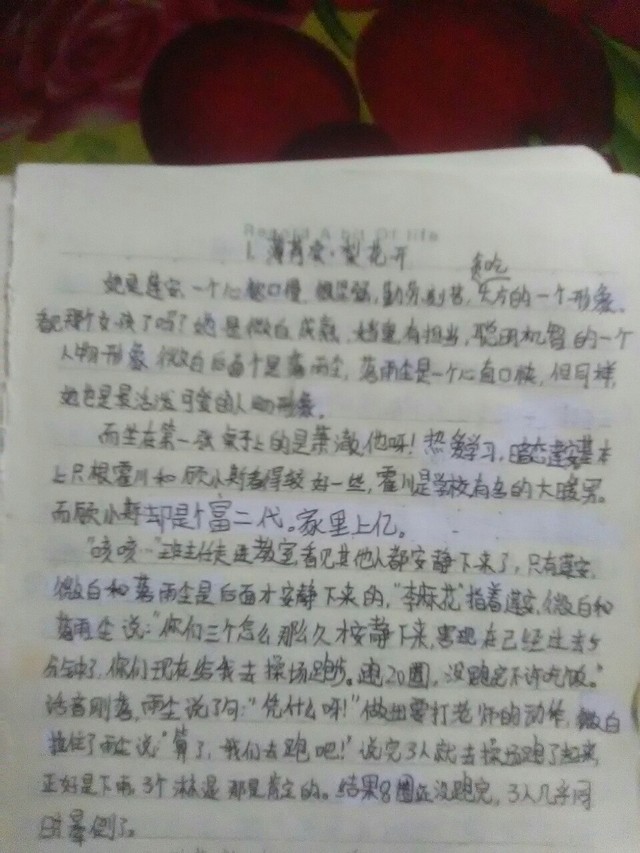 Record A bit Of life
1. 薄荷安·梨花开
她是莲安，一个心软口慢，很坚强，勤劳刻苦，贪吃大方的一个形象。
看那个女孩了吗？她是微白成熟，稳重有担当，聪明机智的一个
人物形象 微白后面个是落雨尘，落雨尘是一个心直口快，但同样，
她也是最活泼可爱的人物形象。
而坐在第一张桌子上的是萧澈，他呀！热爱学习，暗恋莲安基本
上只根霍川和顾小斯看得较好一些，霍川是学校有名的大暖男。
而顾小斯却是个富二代。家里上亿。
"咳咳…"班主任走进教室看见其他人都安静下来了，只有莲安，
微白和落雨尘是后面才安静下来的，"李麻花"指着莲安，微白和
落雨尘说："你们三个怎么那么久才安静下来，害现在已经过去5
分钟了，你们现在给我去操场跑步。跑20圈，没跑完不许吃饭。"
话音刚落，雨尘说了句："凭什么呀！"做出要打老师的动作，微白
拉住了雨尘说"算了，我们去跑吧！"说完3人就去操场跑了起来，
正好是下雨，3个淋湿那是肯定的。结果8圈还没跑完，3人几乎同
时晕倒了。